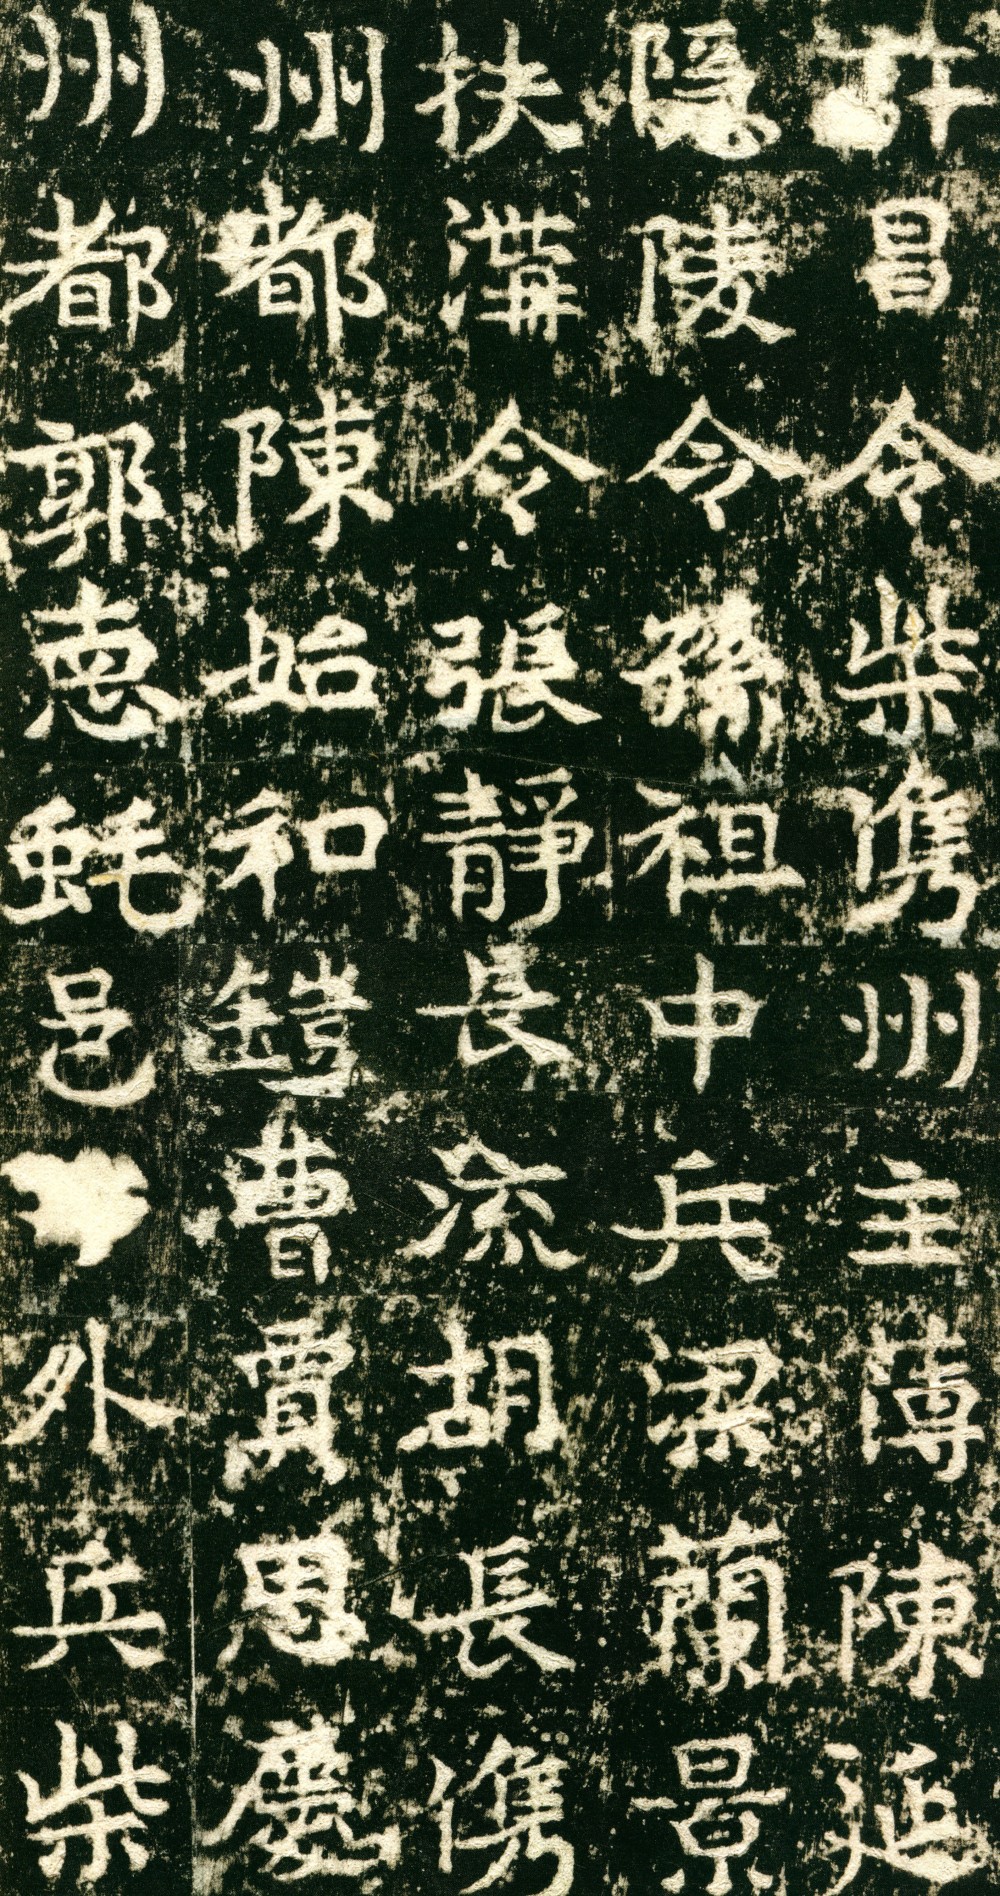 許昌令柴儁州主薄陳延
隱陵令孫祖中兵梁蘭景
扶溝令張靜長流胡長儁
州都陳始和鎧曹賈思慶
州都郭惪蚝邑外兵柴